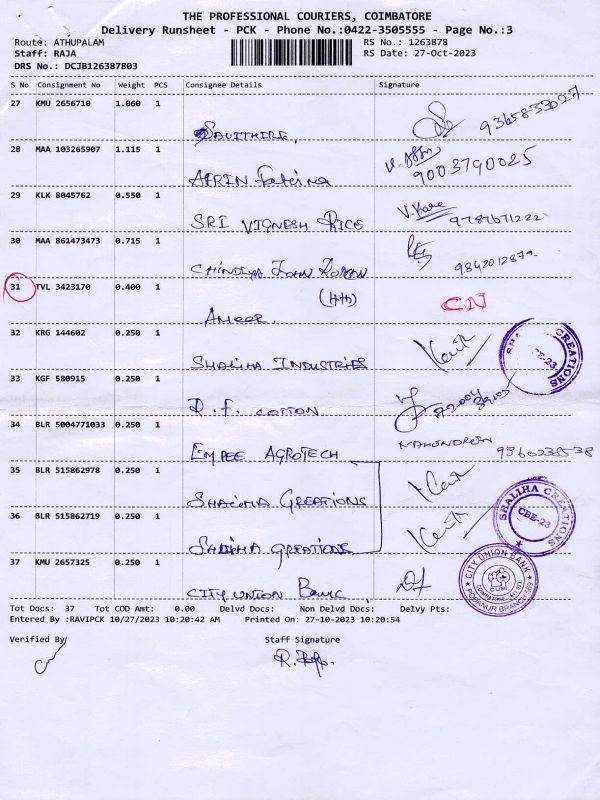 THE PROFESSIONAL COURIERS, COIMBATORE
Delivery Runsheet - PCK - Phone No.:0422-3505555 - Page No.:3
Route: ATHUPALAM
RS No.: 1263878
Staff: RAJA
RS Date: 27-Oct-2023
DRS No.: DCJB126387803
S No Consignment No Weight PCS Consignee Details Signature
27 KMU 2656710 1.060 1
SAVITHIRI, 9365833027
28 MAA 103265907 1.115 1
AFRIN Fatima 9003790025
29 KLK 8045762 0.550 1
SRI VIGNESH RICE 9787671222
30 MAA 861473473 0.715 1
JOHN 9842012879
31 TVL 3423170 0.400 1
(HD) CN
AMEER.
32 KRG 144602 0.250 1
SHALIHA INDUSTRIES
SHALIHA CREATIONS CBE-23
33 KGF 580915 0.250 1
R.F. COTTON
34 BLR 5004771033 0.250 1
EMPEE AGROTECH 9360238538
35 BLR 515862978 0.250 1
SHALIHA CREATIONS
SHALIHA CREATIONS CBE-23
36 BLR 515862719 0.250 1
SHALIHA CREATIONS
37 KMU 2657325 0.250 1
CITY UNION BANK
CITY UNION BANK CUB PODANUR BRANCH
Tot Docs: 37 Tot COD Amt: 0.00 Delvd Docs: Non Delvd Docs: Delvy Pts:
Entered By :RAVIPCK 10/27/2023 10:20:42 AM Printed On: 27-10-2023 10:20:54
Verified By Staff Signature